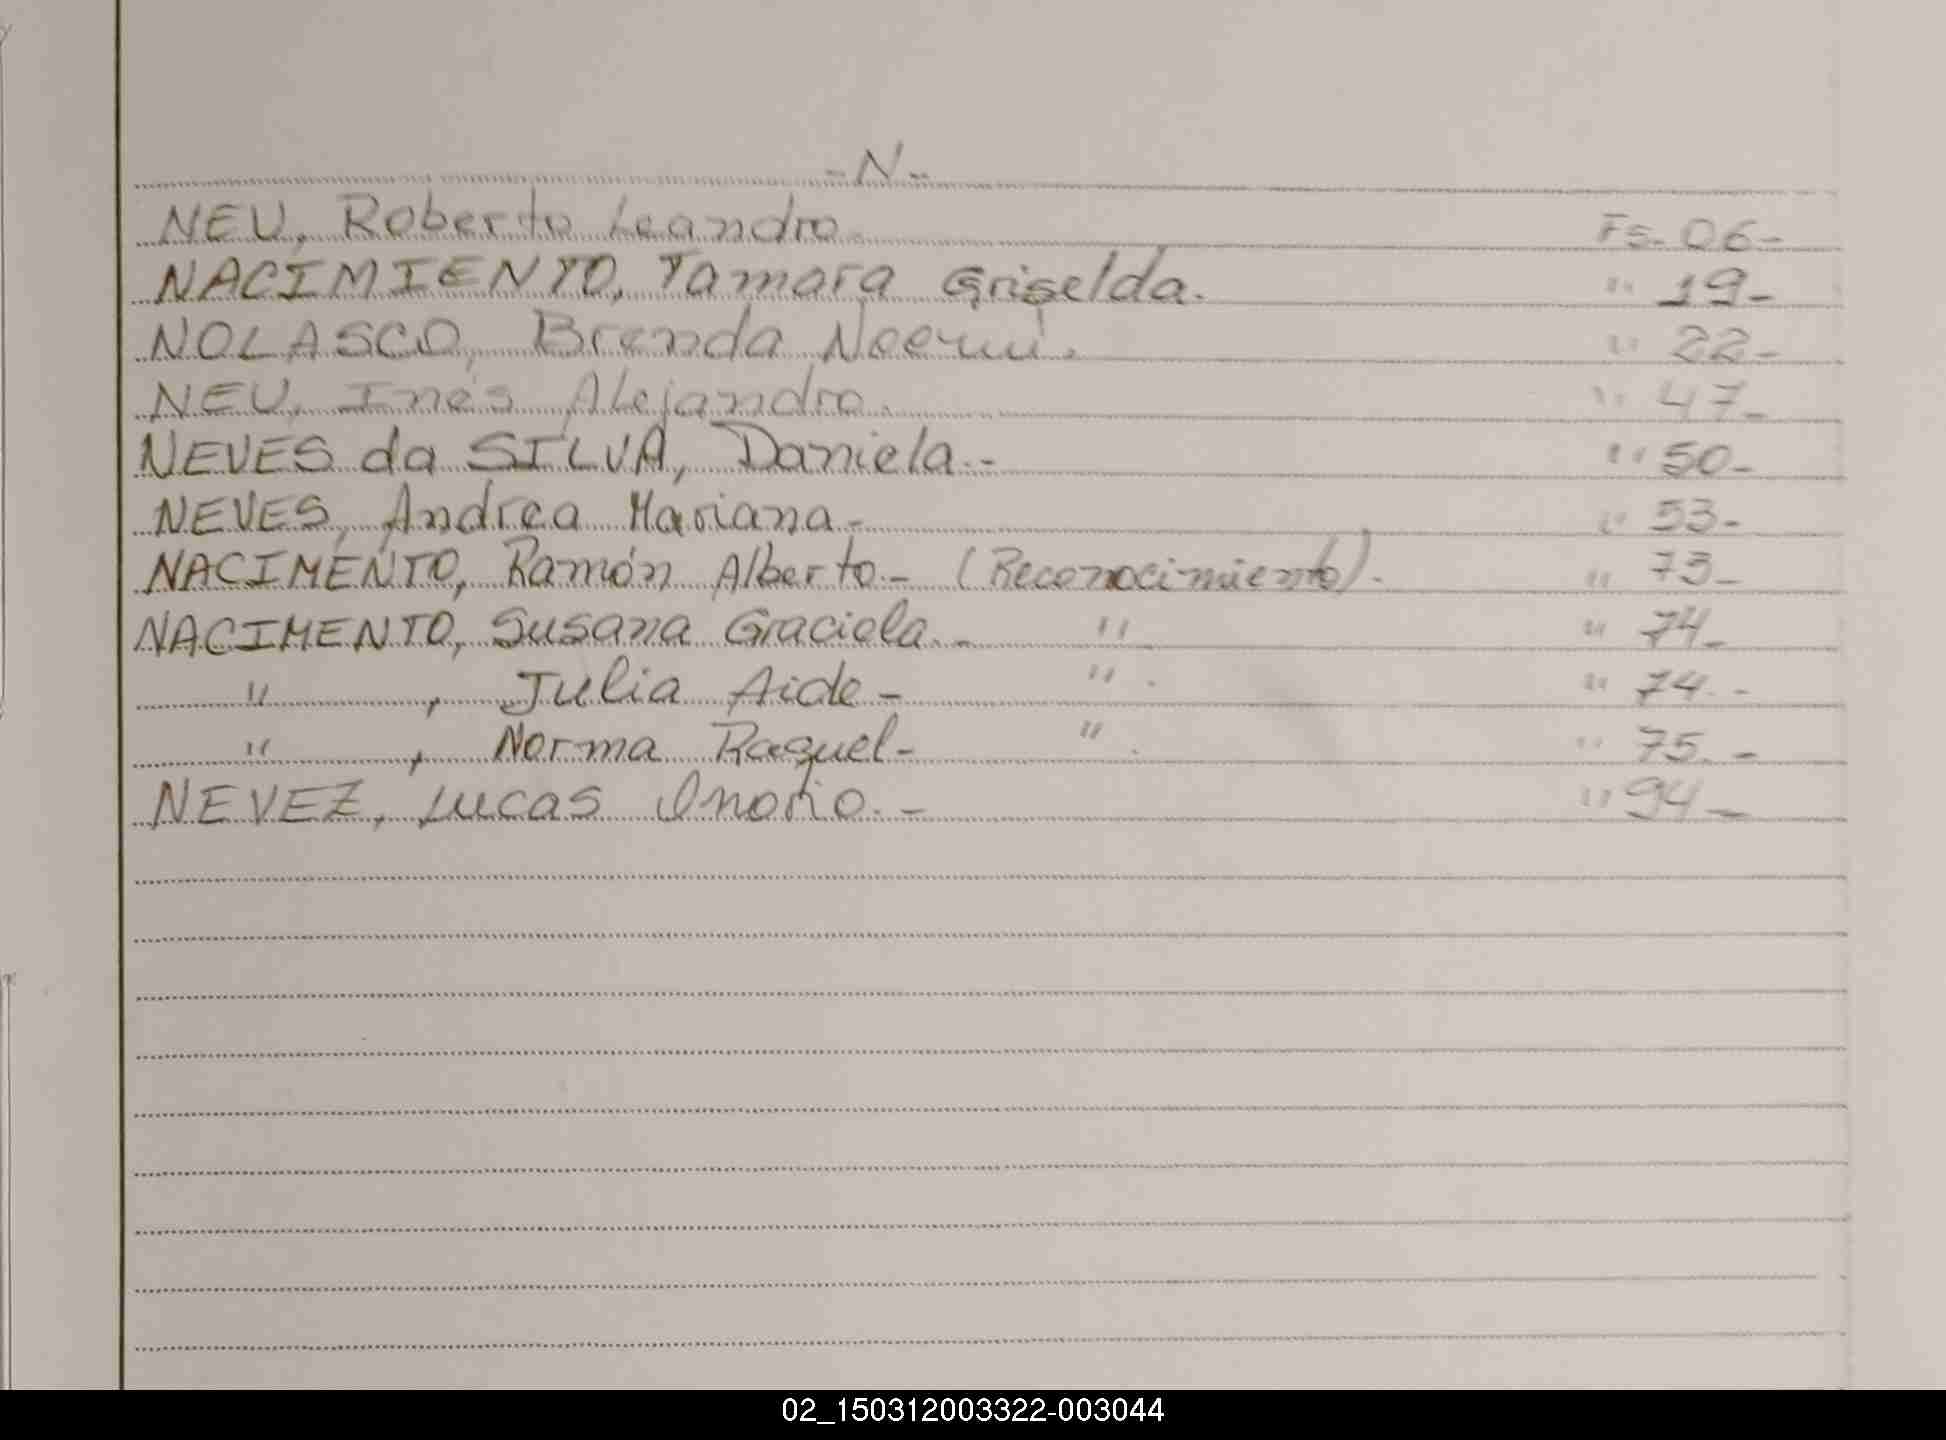 -N-
NEU, Roberto Leandro. Fs. 06-
NACIMIENTO, Tamara Griselda. " 19-
NOLASCO, Brenda Noemí. " 22-
NEU, Inés Alejandra. " 47-
NEVES da SILVA, Daniela.- " 50-
NEVES, Andrea Mariana.- " 53-
NACIMENTO, Ramón Alberto.- (Reconocimiento). " 73-
NACIMENTO, Susana Graciela.- " " 74-
" , Julia Aide- " . " 74.-
" , Norma Raquel- " . " 75.-
NEVEZ, Lucas Onorio.- " 94-
02_150312003322-003044